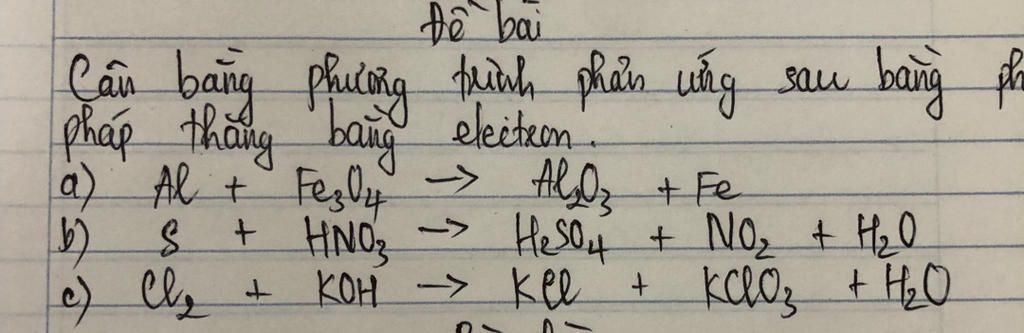 Đề bài
Cân bằng phương trình phản ứng sau bằng ph
pháp thăng bằng electron.
a) Al + Fe₃O₄ → Al₂O₃ + Fe
b) S + HNO₃ → H₂SO₄ + NO₂ + H₂O
c) Cl₂ + KOH → KCl + KClO₃ + H₂O